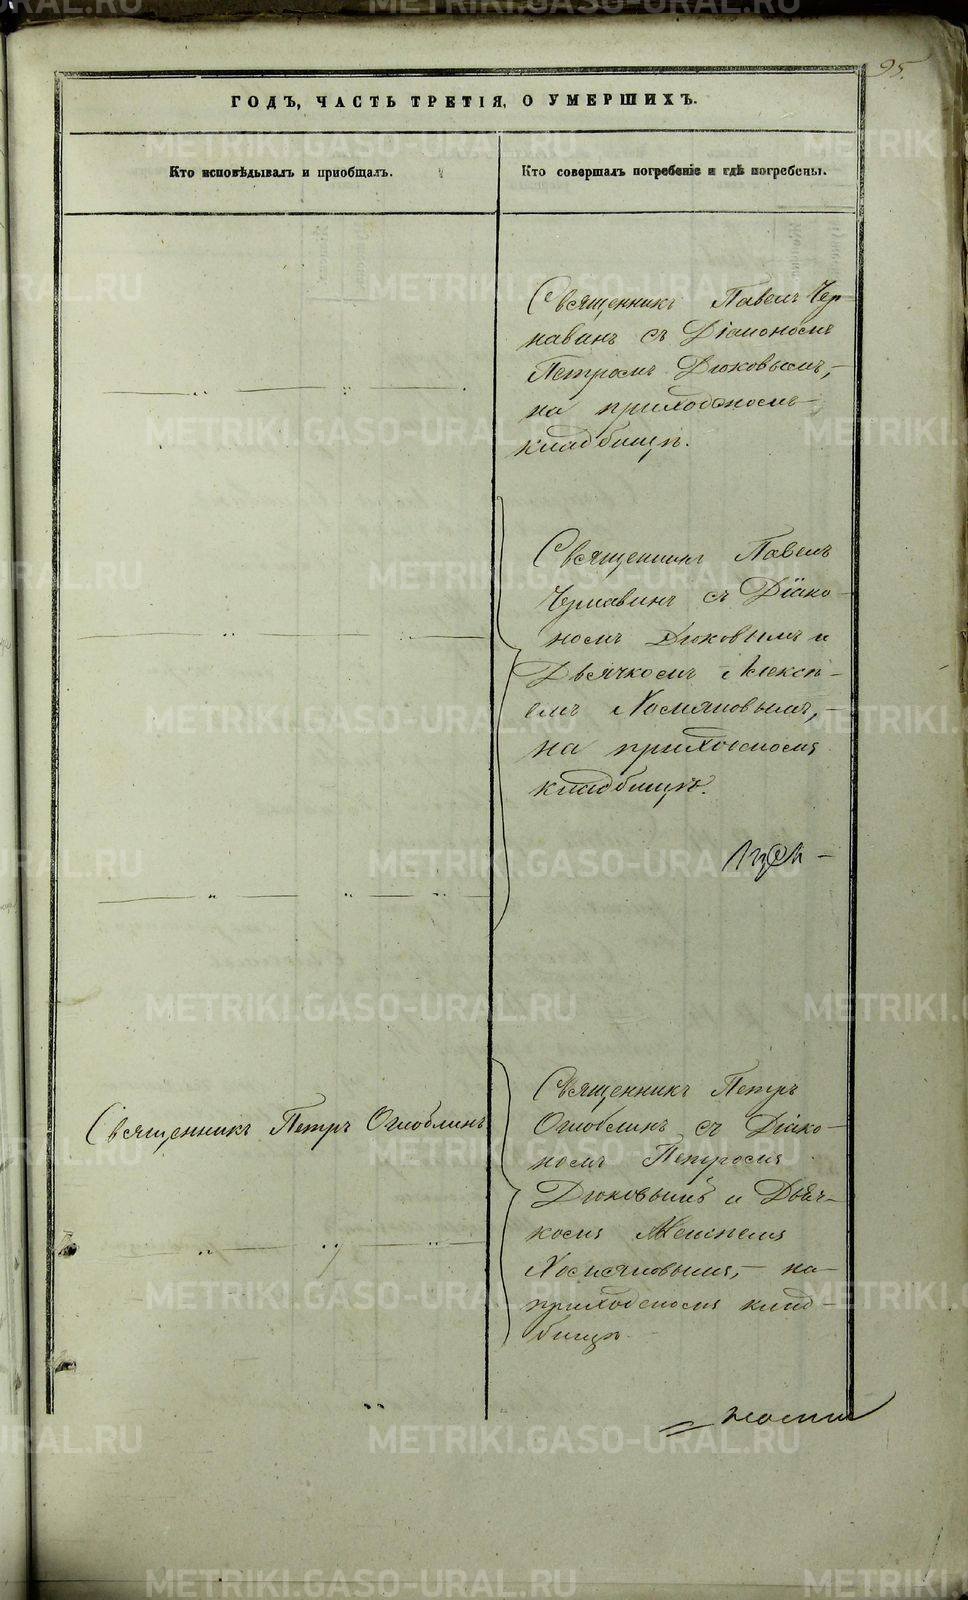 95.
ГОДЪ, ЧАСТЬ ТРЕТІЯ, О УМЕРШИХЪ.
Кто исповѣдывалъ и пріобщалъ.
Кто совершалъ погребеніе и гдѣ погребены.
Священникъ Павелъ Чер
навинъ съ Діакономъ
Петромъ Дюковымъ,
на приходскомъ
кладбищѣ.
Священникъ Павелъ
Чернавинъ съ Діако-
номъ Дюковымъ и
Дьячкомъ Алексѣ-
емъ
на приходскомъ
кладбищѣ.
Священникъ Петръ Оглоблинъ
Священникъ Петръ
Оглоблинъ съ Діако-
номъ Петромъ
Дюковымъ и Дьяч-
комъ
на
приходскомъ клад-
бищѣ
METRIKI.GASO-URAL.RU